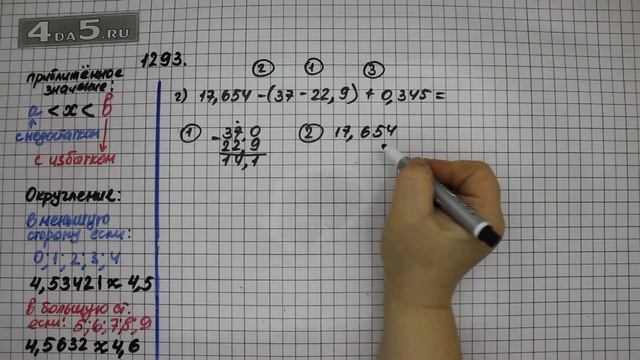 4DA5.RU
1293.
② ① ③
г) 17,654 - (37 - 22,9) + 0,345 =
① - 37,0
22,9
14,1
② 17,654
приближённое
значение:
а < х < в
с недостатком
с избытком
Округление:
в меньшую
сторону если:
0; 1; 2; 3; 4
4,53421 ≈ 4,5
в большую ст.
если: 5; 6; 7; 8; 9
4,5632 ≈ 4,6